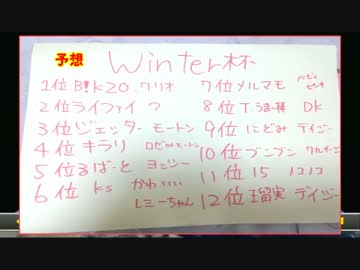 予想
Winter杯
1位 B!k20.クリオ
2位ライファイ ?
3位ジェッター モートン
4位キラリ ロゼッタモートン
5位るばーと ヨッシー
6位 ks かわいい
レミーちゃん
7位メルマモ ベビィピーチ
8位Tうまい棒 DK
9位にどみ デイジー
10位ブンブン
11位 15 ノコノコ
12位瑠実 デイジー